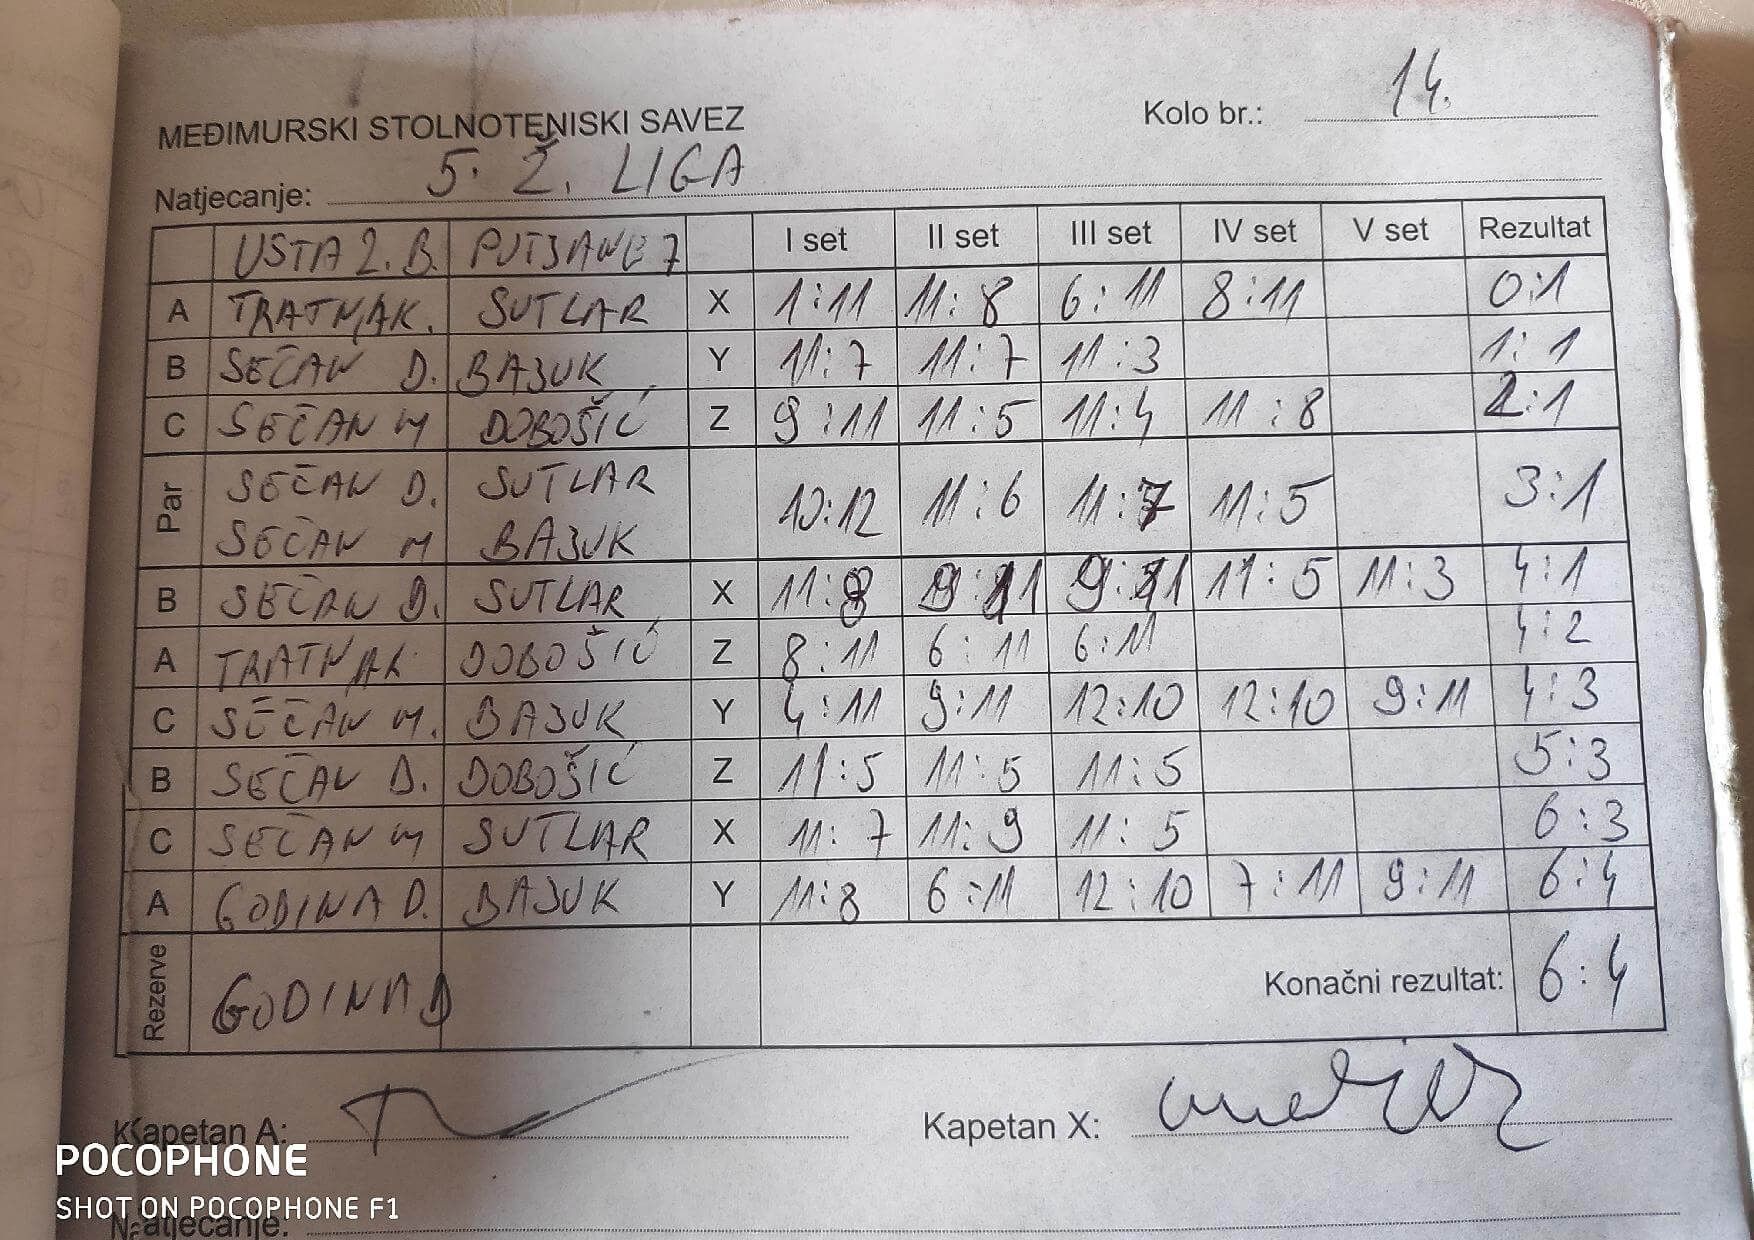 MEĐIMURSKI STOLNOTENISKI SAVEZ
Kolo br.: 14.
Natjecanje: 5. Ž. LIGA
USTA 2. B. PUTJANE 7 I set II set III set IV set V set Rezultat
A TRATNJAK. SUTLAR X 1:11 11:8 6:11 8:11 0:1
B SEČAN D. BAJUK Y 11:7 11:7 11:3 1:1
C SEČAN M DOBOŠIĆ Z 9:11 11:5 11:4 11:8 2:1
Par SEČAN D. SUTLAR 10:12 11:6 11:7 11:5 3:1
SEČAN M BAJUK
B SEČAN D. SUTLAR X 11:8 9:11 9:11 11:5 11:3 4:1
A TRATNJAK DOBOŠIĆ Z 8:11 6:11 6:11 4:2
C SEČAN M. BAJUK Y 4:11 9:11 12:10 12:10 9:11 4:3
B SEČAN D. DOBOŠIĆ Z 11:5 11:5 11:5 5:3
C SEČAN M SUTLAR X 11:7 11:9 11:5 6:3
A GODINA D. BAJUK Y 11:8 6:11 12:10 7:11 9:11 6:4
Rezerve GODINA D Konačni rezultat: 6:4
Kapetan A: Kapetan X:
POCOPHONE
SHOT ON POCOPHONE F1
Natjecanje: